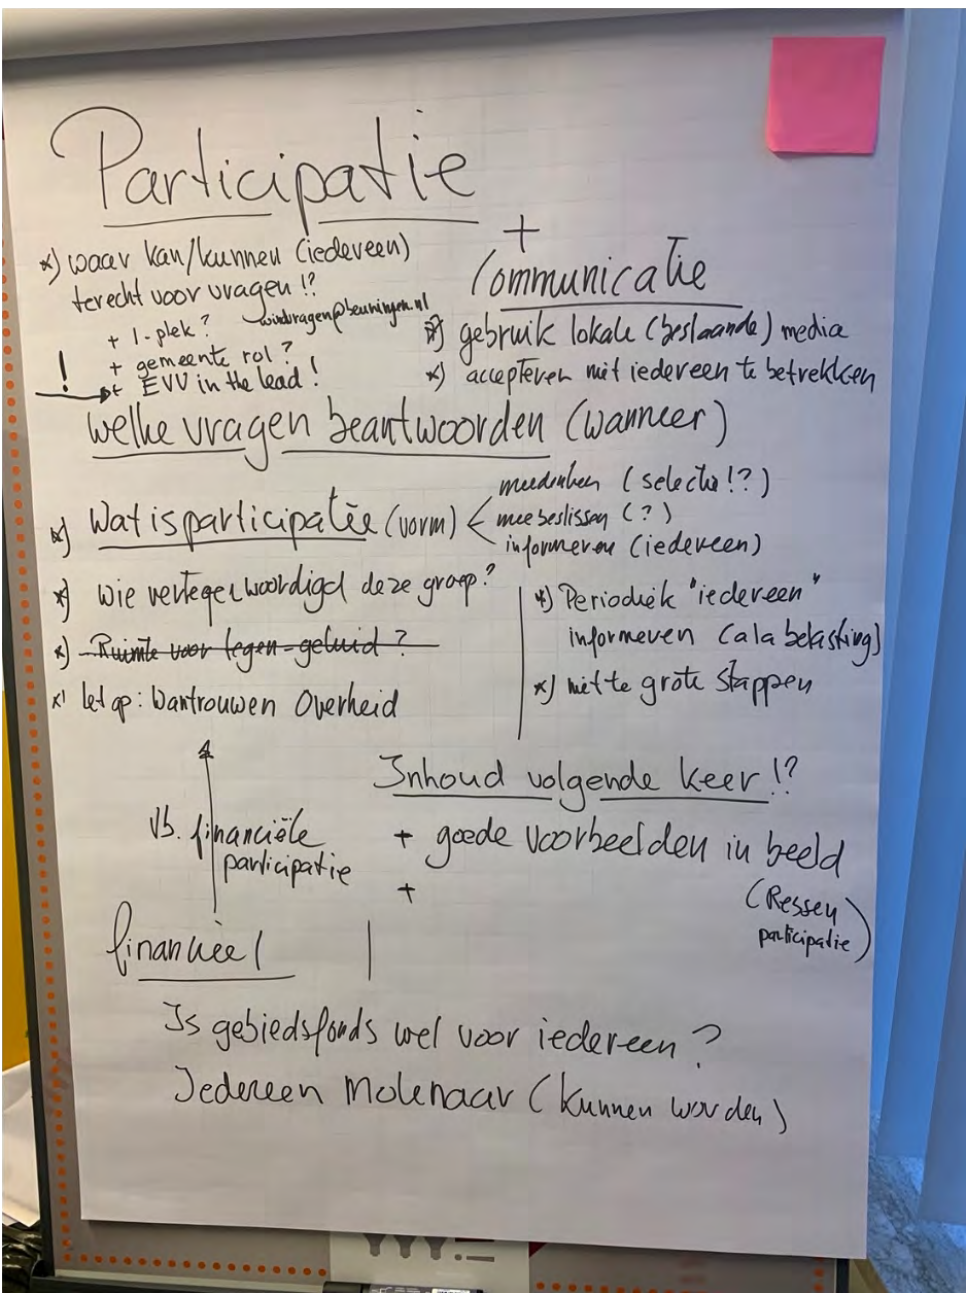 Participatie
*) waar kan/kunnen (iedereen)
terecht voor vragen !?
+ 1-plek?
windvragen@beuningen.nl
+ gemeente rol?
! + EVV in the lead!
+
Communicatie
*) gebruik lokale (bestaande) media
*) accepteren niet iedereen te betrekken
welke vragen beantwoorden (wanneer)
*) Wat is participatie (vorm) <
meedenken (selectie !?)
meebeslissen (?)
informeren (iedereen)
*) wie vertegenwoordigd deze groep?
*) Ruimte voor tegen-geluid?
*) let op: Wantrouwen Overheid
*) Periodiek "iedereen"
informeren (a la belasting)
*) niet te grote stappen
Vb. financiële
participatie
Inhoud volgende keer !?
+ goede voorbeelden in beeld
(Ressen
participatie)
+
financieel
Is gebiedsfonds wel voor iedereen?
Iedereen Molenaar (kunnen worden)